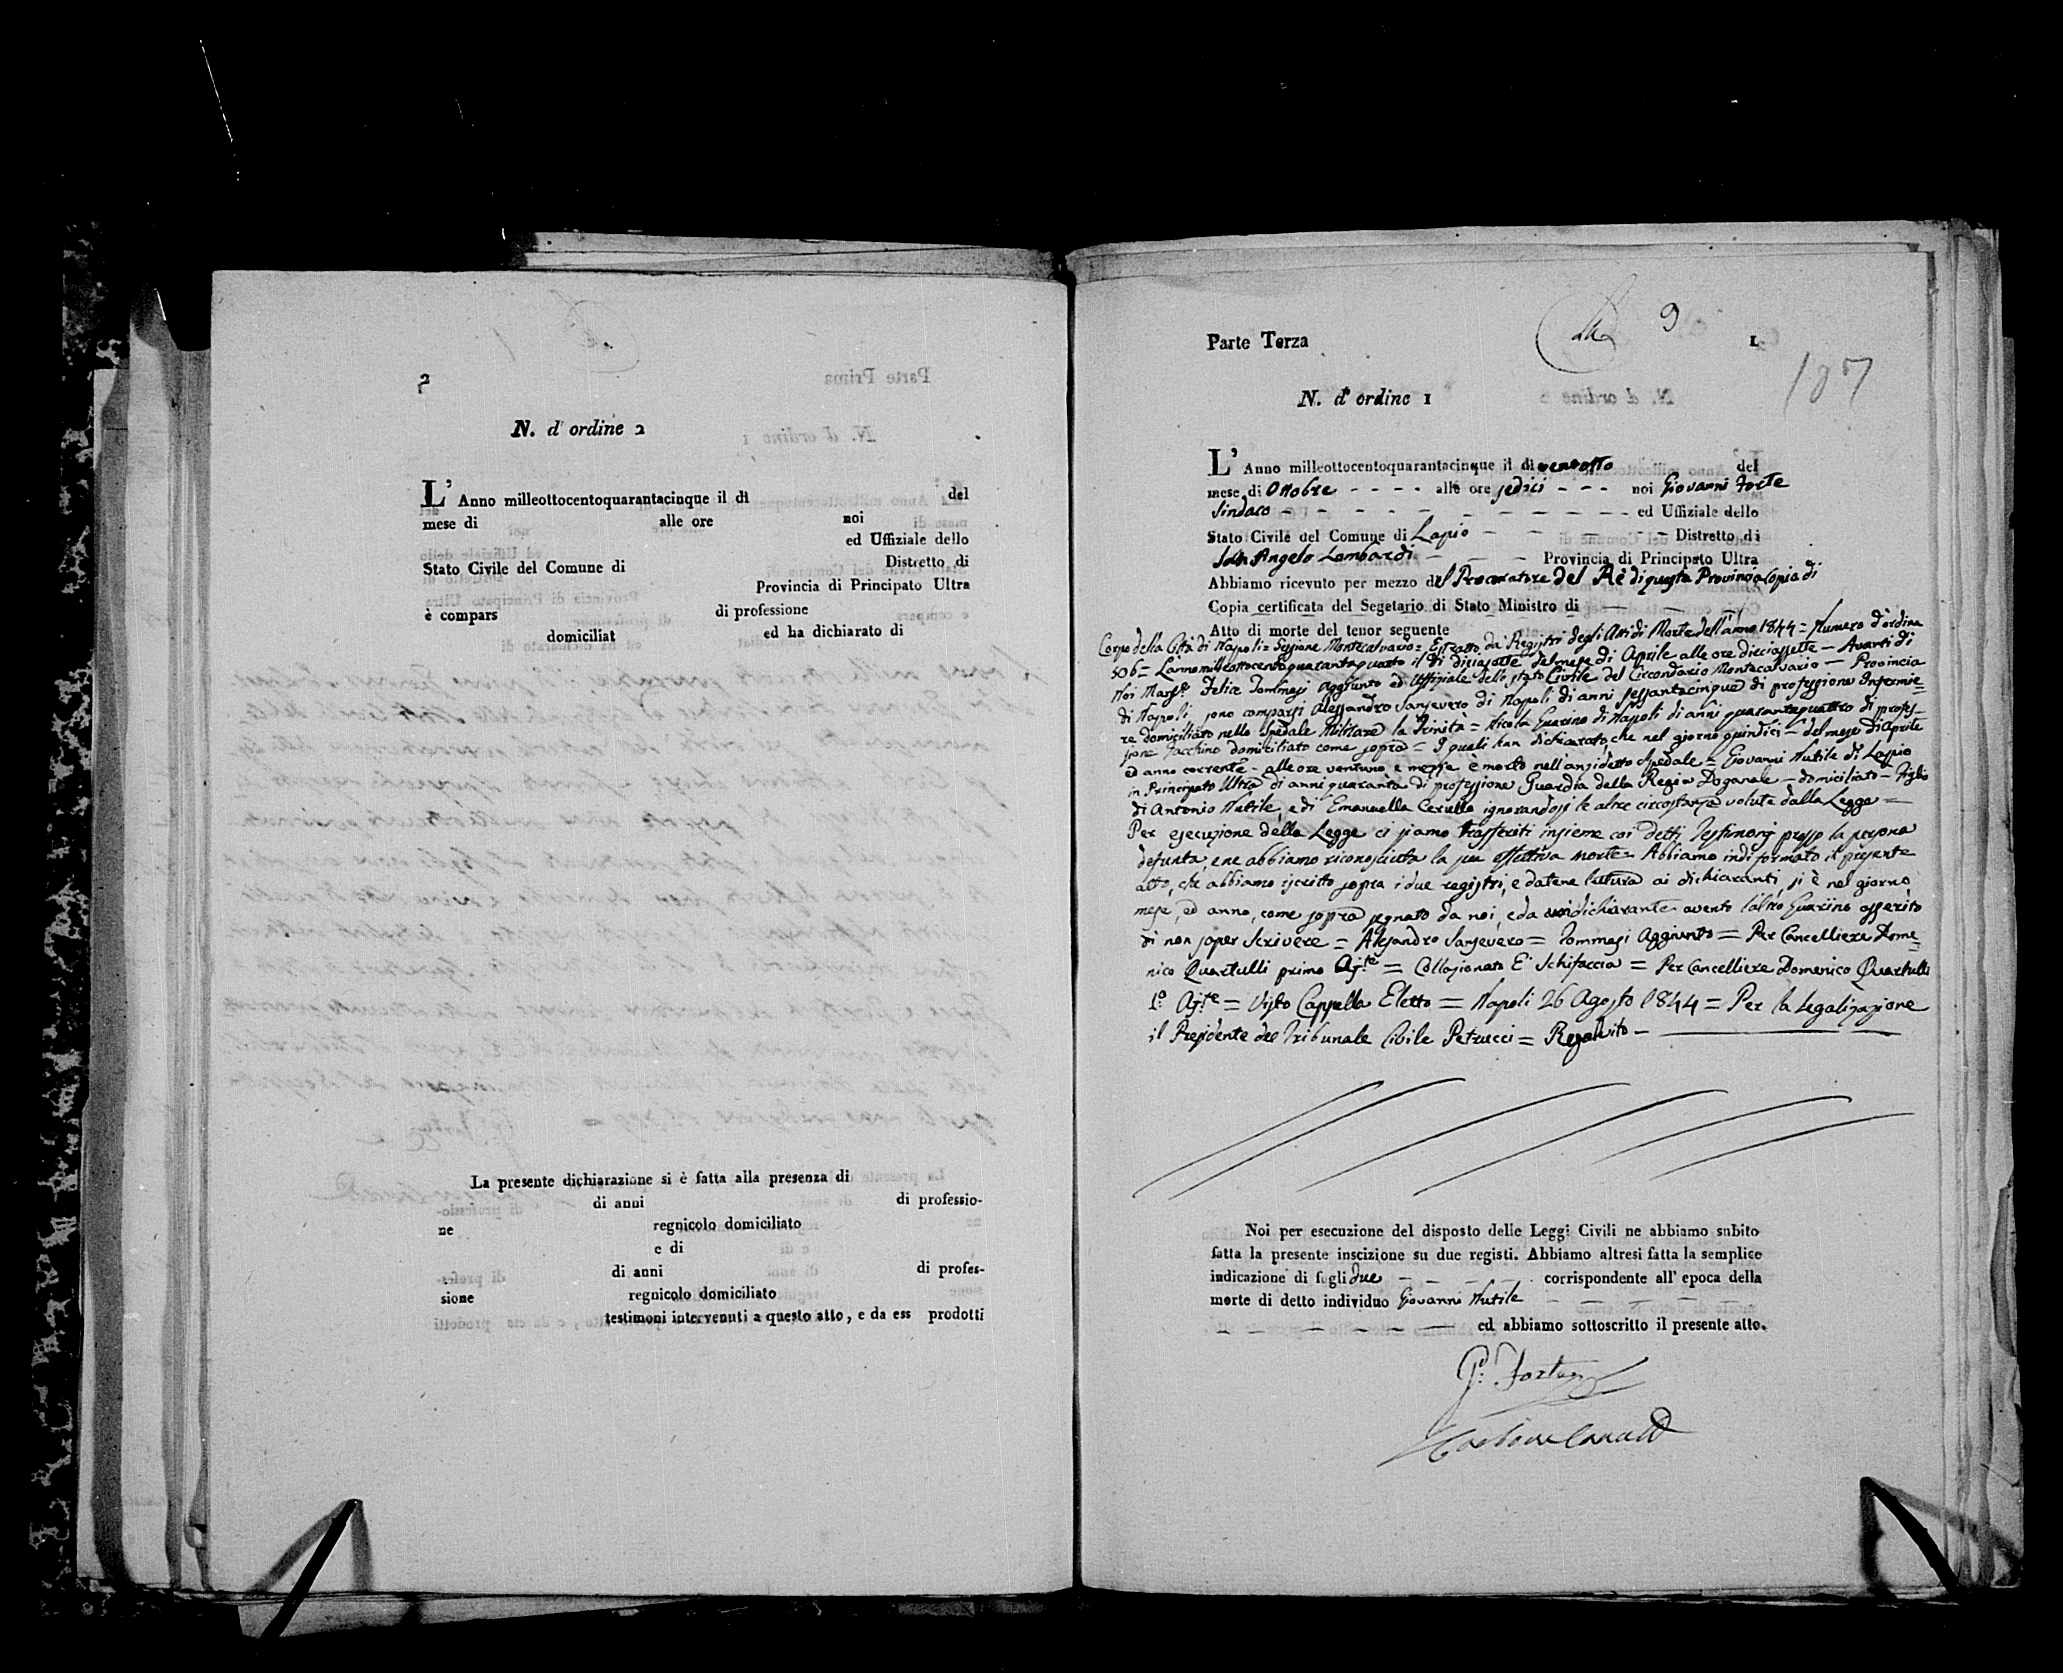 2
N. d' ordine 2
L' Anno milleottocentoquarantacinque il di del
mese di alle ore noi
ed Uffiziale dello
Stato Civile del Comune di Distretto di
Provincia di Principato Ultra
è compars di professione
domiciliat ed ha dichiarato di
La presente dichiarazione si è fatta alla presenza di
di anni di professio-
ne regnicolo domiciliato
e di
di anni di profes-
sione regnicolo domiciliato
testimoni intervenuti a questo atto, e da ess prodotti
Parte Terza 9 1
107
N. d' ordine 1
L' Anno milleottocentoquarantacinque il di ventotto del
mese di Ottobre - - - - alle ore sedici - - - noi Giovanni Forte
Sindaco - - - - - - - - - - ed Uffiziale dello
Stato Civile del Comune di Lapio - - - - - - Distretto di
San Angelo Lombardi - - - - Provincia di Principato Ultra
Abbiamo ricevuto per mezzo del Procuratore del Rè di questa Provincia Copia di
Copia certificata del Segetario di Stato Ministro di - - - -
Atto di morte del tenor seguente
Corpo della Città di Napoli = Sezione Montecalvario = Estratto da' Registri degli Atti di Morte dell'anno 1844 = Numero d'ordine
506 = L'anno milleottocentoquarantaquattro il dì diciasette del mese di Aprile alle ore diciassette - Avanti di
Noi Felice Tommasi Aggiunto ed Uffiziale dello Stato Civile del Circondario Montecalvario - Provincia
di Napoli sono comparsi Alessandro Sansevero di Napoli di anni sessantacinque di professione Infermie=
re domiciliato nello Spedale Militare la Trinità = Nicola Guarino di Napoli di anni quarantaquattro di profes-
sione Facchino domiciliato come sopra = I quali han dichiarato, che nel giorno quindici = del mese di Aprile
ed anno corrente - alle ore ventuno e mezza è morto nell'anzidetto Spedale = Giovanni Nutile di Lapio
in Principato Ultra di anni quaranta di professione Guardia della Regia Doganale - domiciliato - Figlio
di Antonio Nutile, e di Emanuella Cerullo ignorandosi le altre circostanze volute dalla Legge =
Per esecuzione della Legge ci siamo trasferiti insieme coi detti Testimonj presso la persona
defunta, e ne abbiamo riconosciuta la sua effettiva morte - Abbiamo indi formato il presente
atto, che abbiamo iscritto sopra i due registri, e datene lettura ai dichiaranti, si è nel giorno,
mese, ed anno, come sopra segnato da noi, e da un dichiarante avento l'altro Guarino asserito
di non saper Scrivere = Alessandro Sansevero = Tommasi Aggiunto = Per Cancelliere Dome=
nico Quartulli primo Aj.te = Collazionato E. Schifaccia = Per Cancelliere Domenico Quartulli
1.o Aj.te = Visto Cappella Eletto = Napoli 26 Agosto 1844 = Per la Legalizazione
il Presidente del Tribunale Civile Petrucci = Registrito -
Noi per esecuzione del disposto delle Leggi Civili ne abbiamo subito
fatta la presente inscizione su due registi. Abbiamo altresi fatta la semplice
indicazione di fogli due - - - - - corrispondente all' epoca della
morte di detto individuo Giovanni Nutile - - - - -
- - - - - - ed abbiamo sottoscritto il presente atto.